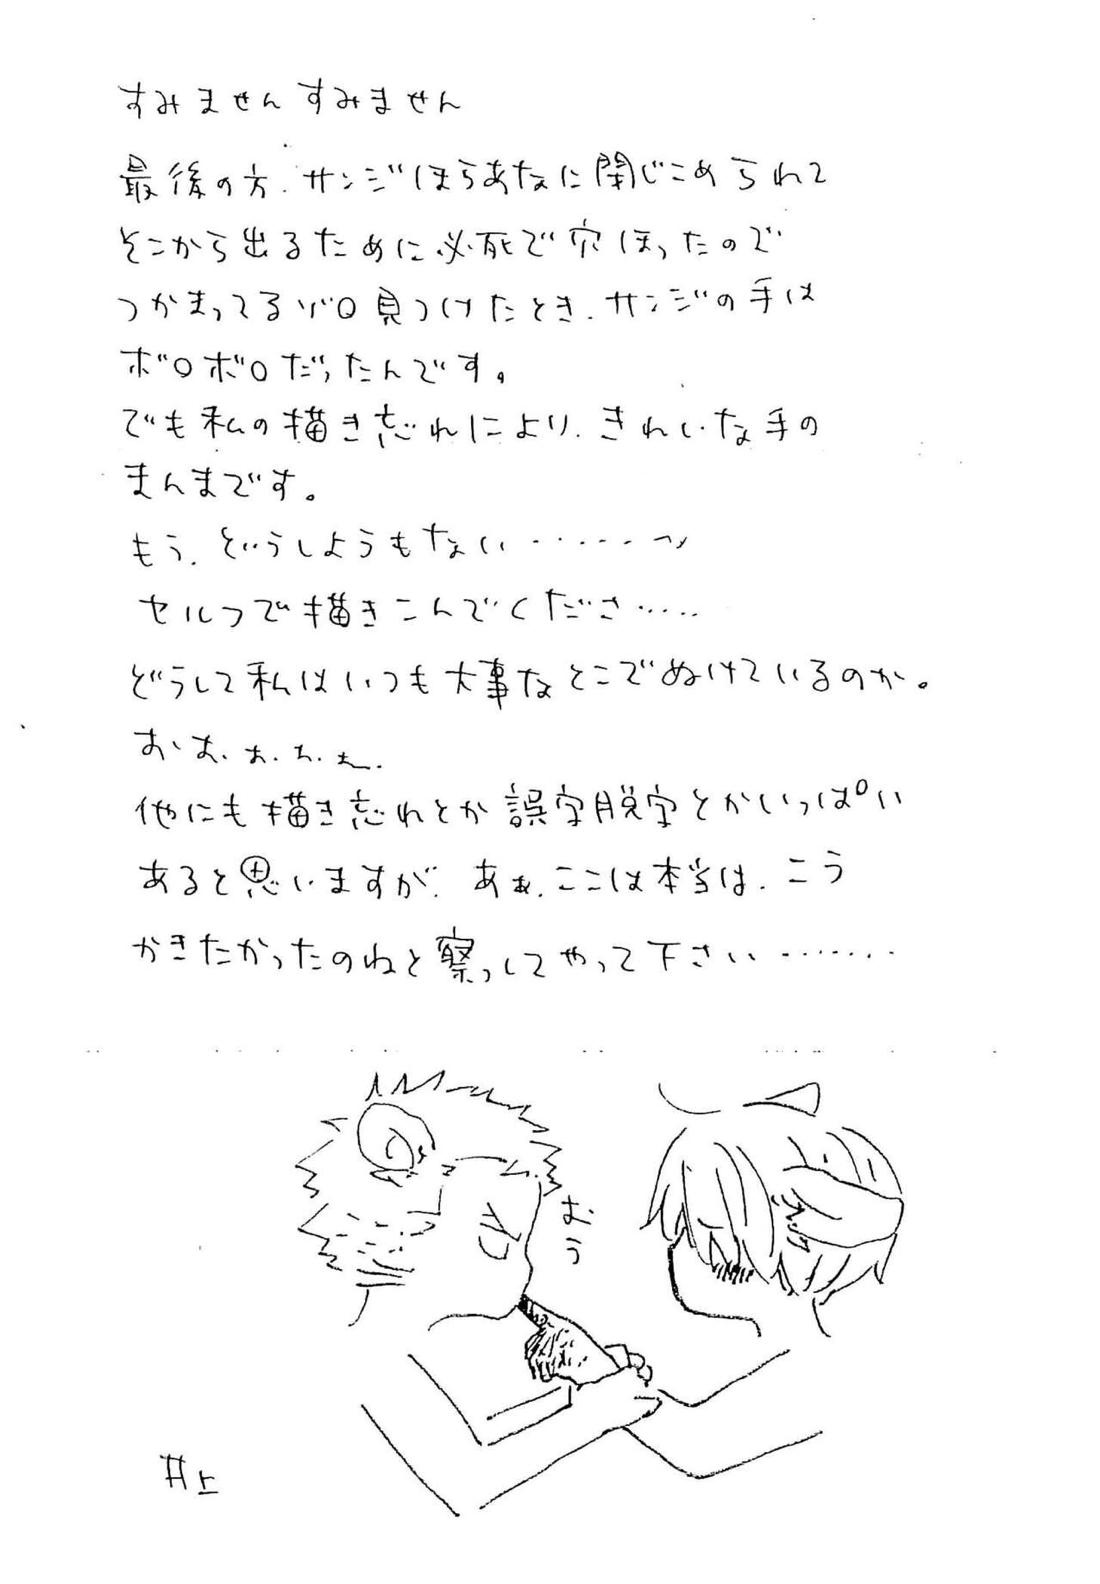 すみませんすみません
最後の方、サンジほらあなに閉じこめられて
そこから出るために必死で穴ほったので
つかまってるゾロ見つけたとき、サンジの手は
ボロボロだったんです。
でも私の描き忘れにより、きれいな手の
まんまです。
もう、どうしようもない……〜
セルフで描きこんでくださ……
どうして私はいつも大事なとこでぬけているのか。
お、お、ぉ、ぉ、ぉ、
他にも描き忘れとか誤字脱字とかいっぱい
あると思いますが、あぁ、ここは本当は、こう
かきたかったのねと察っしてやって下さい………
おう
井上